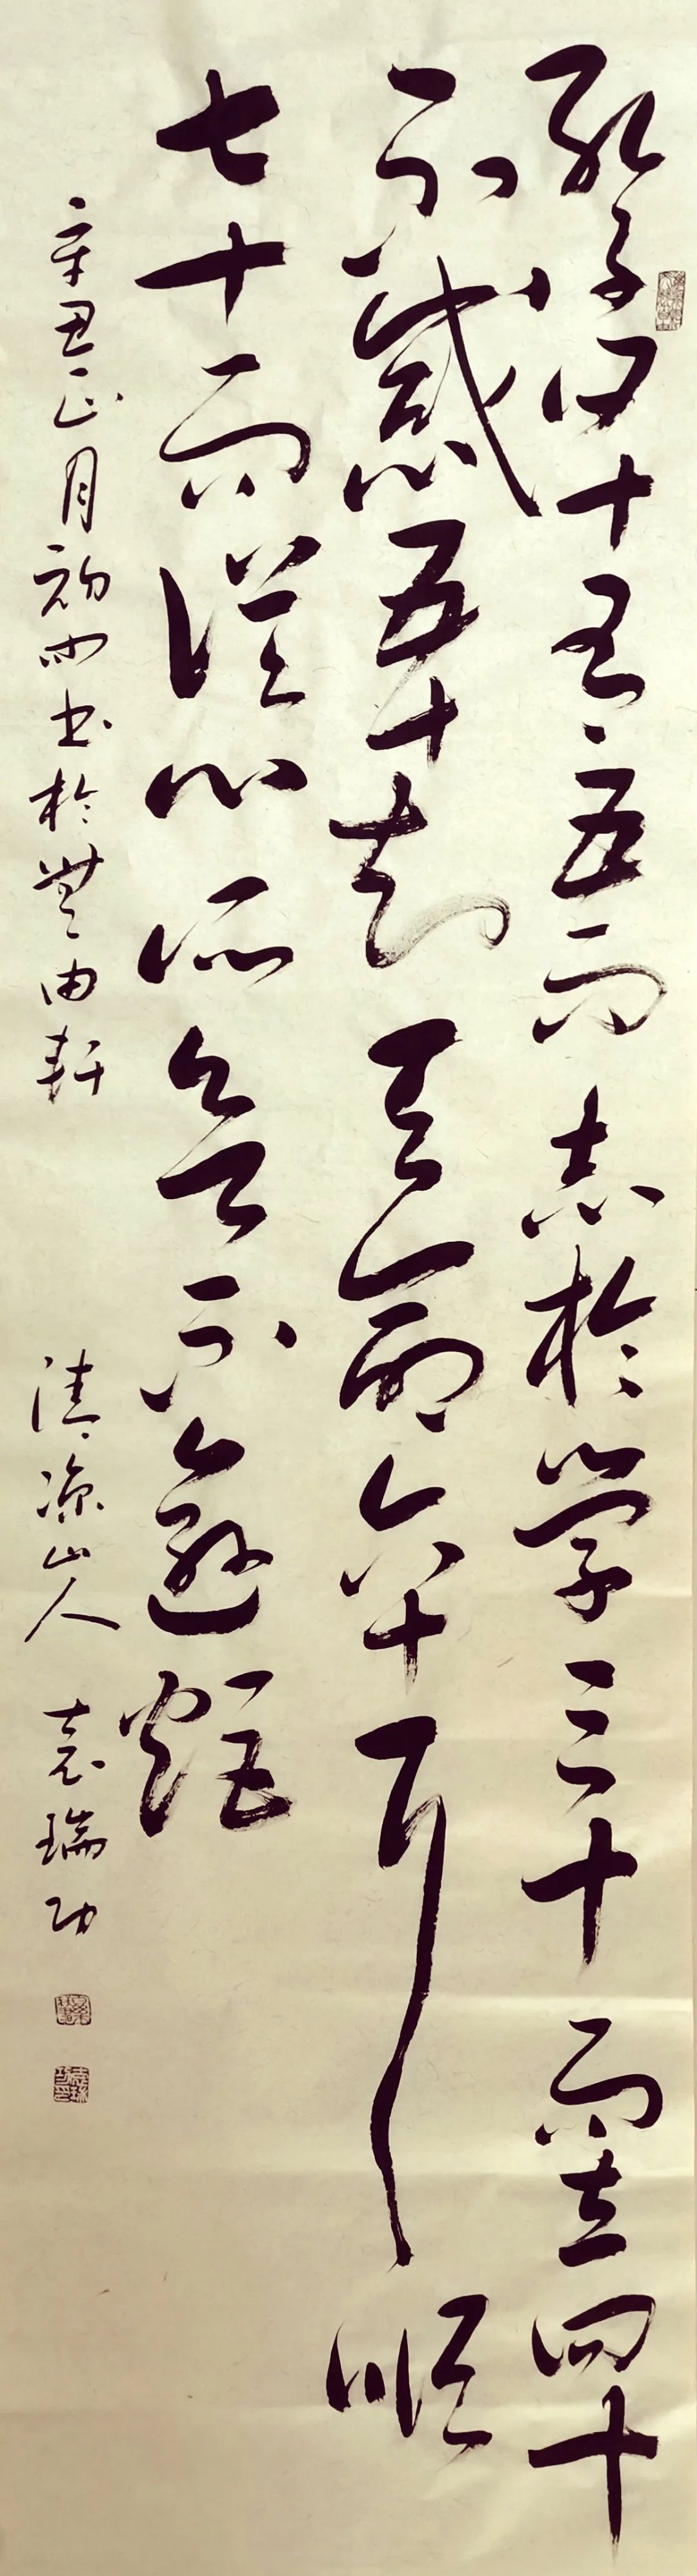 孔子曰十有五而志於学三十而立四十
不惑五十知天命六十耳順
七十而從心所欲不逾矩
辛丑正月初四书於無由軒
清凉山人 袁瑞功